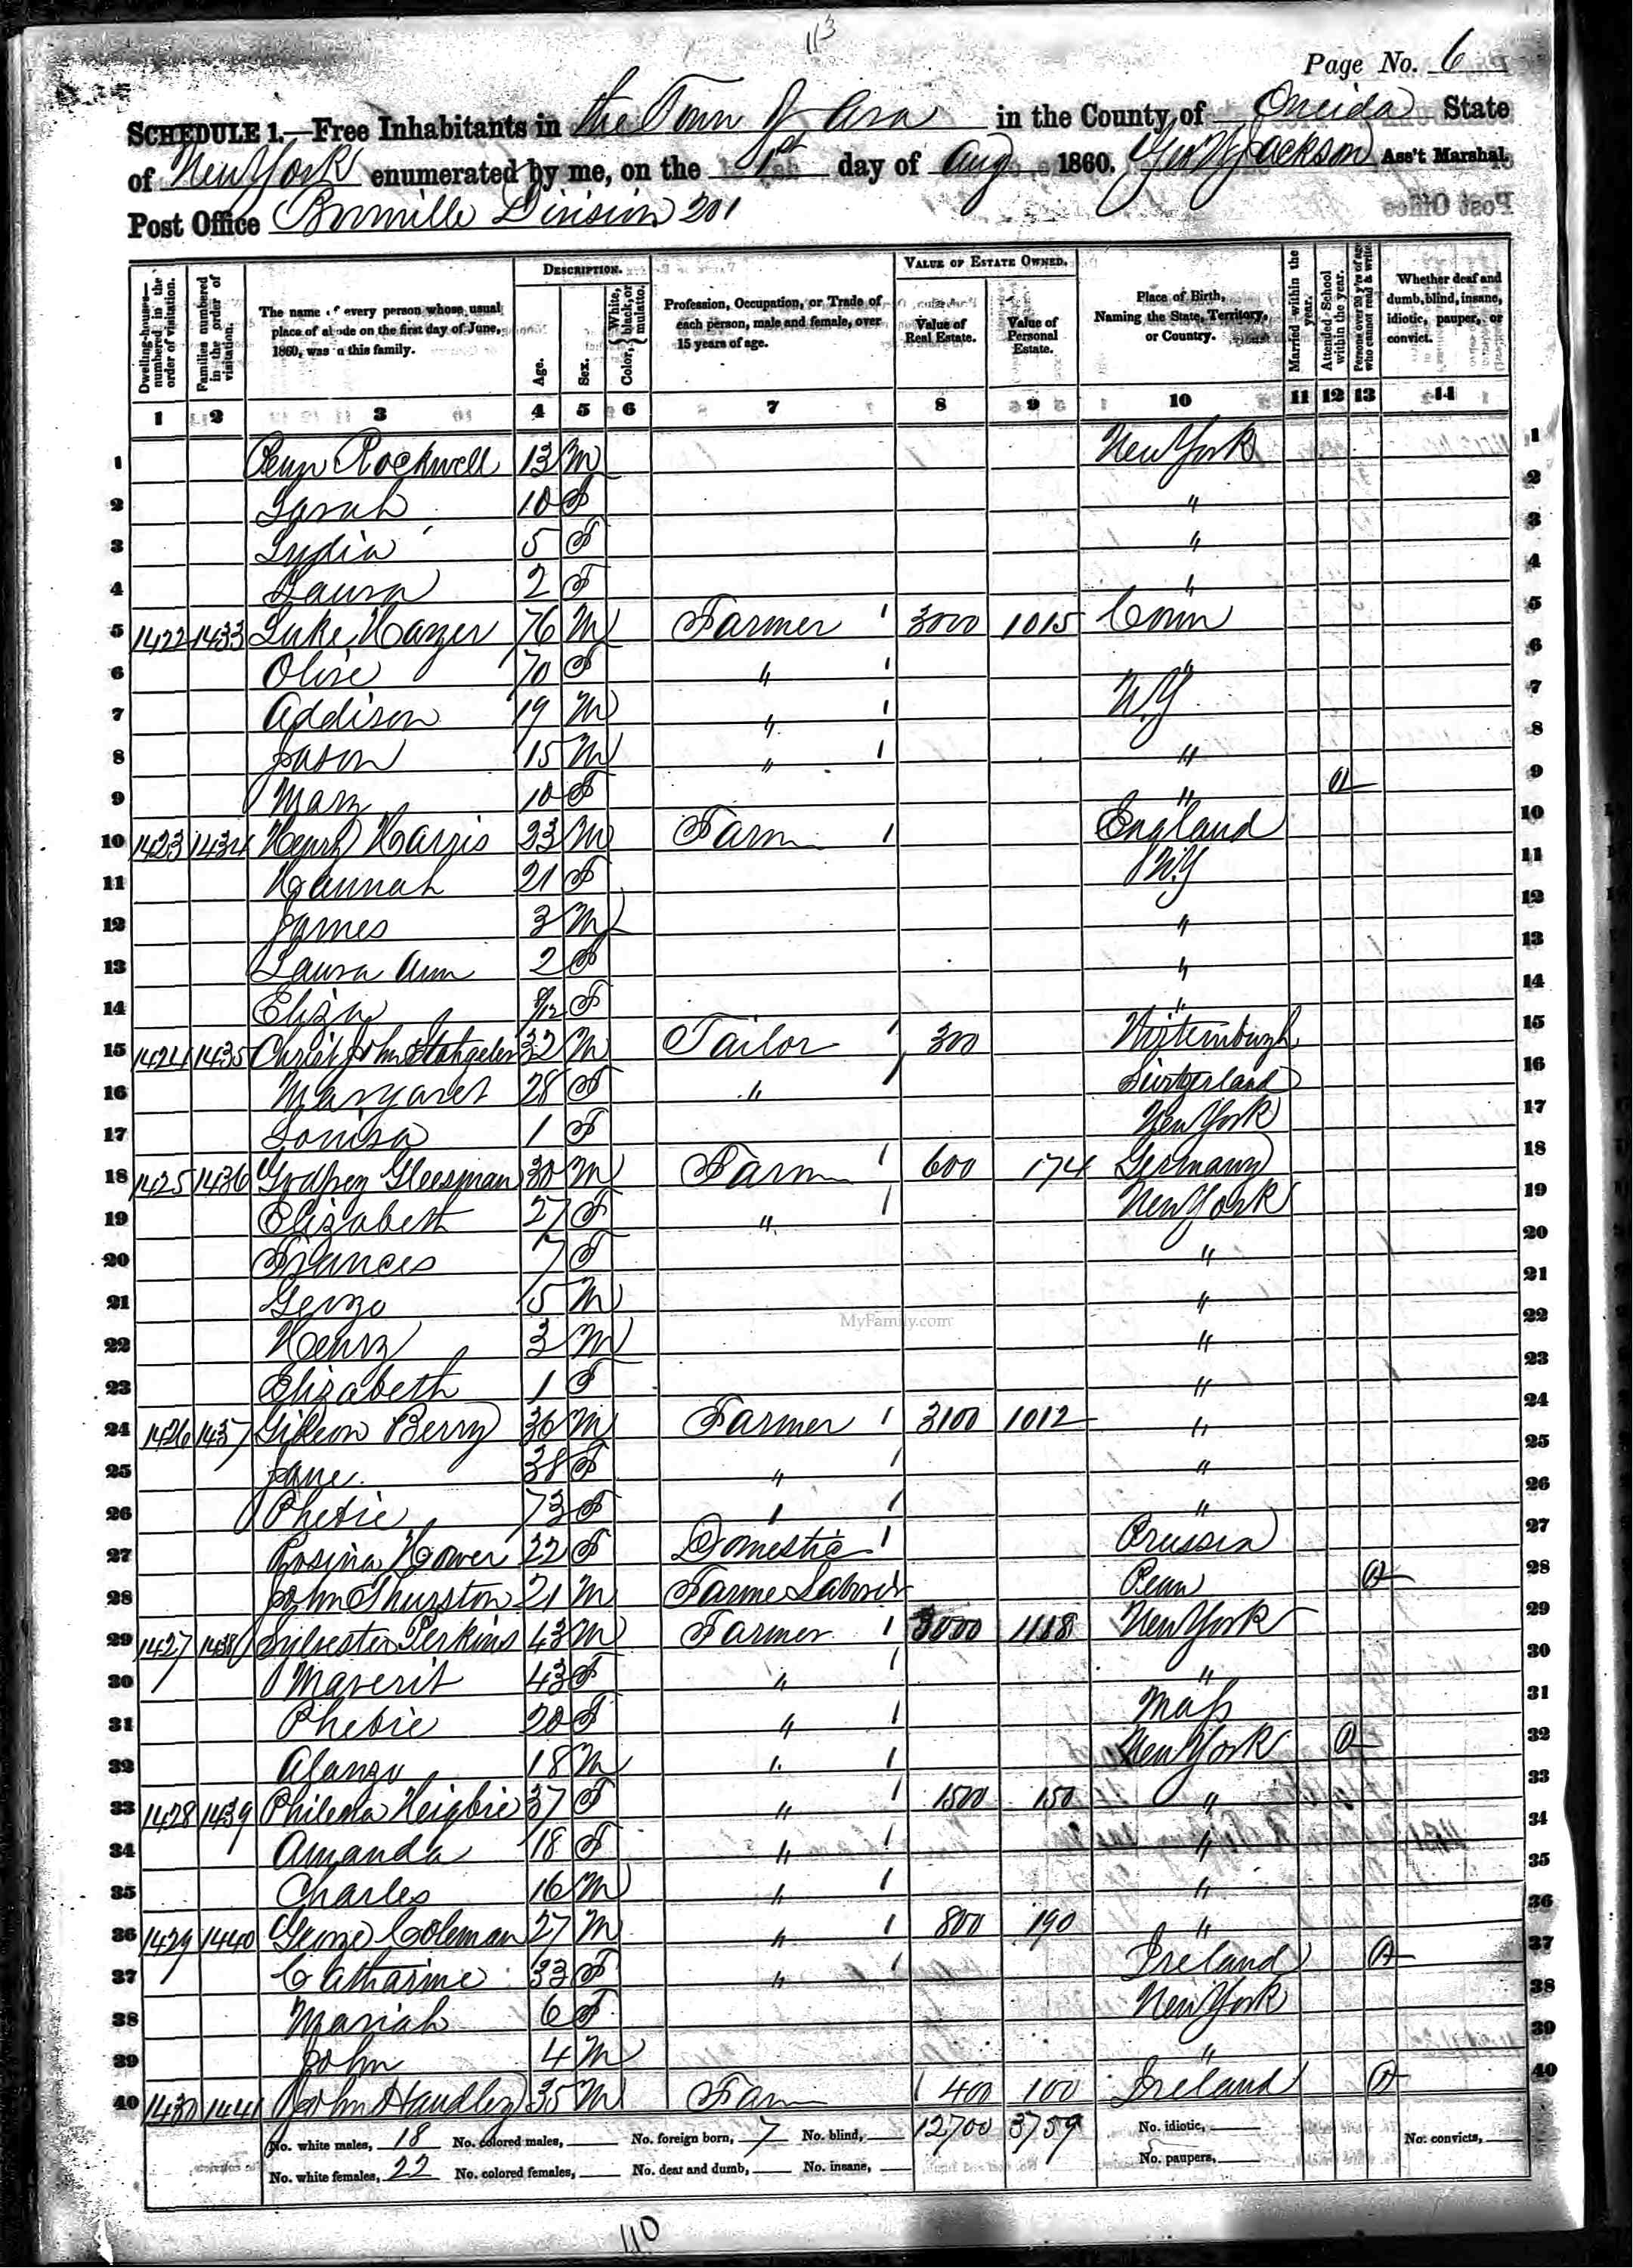 113
Page No. 6
SCHEDULE 1.—Free Inhabitants in the Town of Ava in the County of Oneida State
of New York enumerated by me, on the 1st day of Aug 1860. Geo W Jackson Ass't Marshal.
Post Office Boonville Division 201
DESCRIPTION. VALUE OF ESTATE OWNED.
Dwelling-houses—numbered in the order of visitation. Families numbered in the order of visitation. The name of every person whose usual place of abode on the first day of June, 1860, was in this family. Age. Sex. Color, White, black, or mulatto. Profession, Occupation, or Trade of each person, male and female, over 15 years of age. Value of Real Estate. Value of Personal Estate. Place of Birth, Naming the State, Territory, or Country. Married within the year. Attended School within the year. Persons over 20 y'rs of age who cannot read & write. Whether deaf and dumb, blind, insane, idiotic, pauper, or convict.
1 2 3 4 5 6 7 8 9 10 11 12 13 14
1 Rockwell 13 M New York 1
2 Sarah 10 F " 2
3 Lydia 5 F " 3
4 Laura 2 F " 4
5 1422 1433 Luke 76 M Farmer 3000 1015 Conn 5
6 Olive 70 F " " 6
7 Addison 19 M " N.Y 7
8 Jason 15 M " " 8
9 Mary 10 F " 9
10 1423 1434 Henry Harris 23 M Farm England 10
11 Hannah 21 F N.Y 11
12 James 3 M " 12
13 Laura Ann 2 F " 13
14 Eliza 8/12 F " 14
15 1424 1435 Christ John 32 M Tailor 300 15
16 Margaret 28 F " Switzerland 16
17 Louisa 1 F New York 17
18 1425 1436 Godfrey Gleesman 30 M Farm 600 174 Germany 18
19 Elizabeth 27 F " New York 19
20 Frances 7 F " 20
21 5 M " 21
22 Henry 3 M " 22
MyFamily.com
23 Elizabeth 1 F " 23
24 1426 1437 Gideon Berry 36 M Farmer 3100 1012 " 24
25 Jane 38 F " " 25
26 Phebie 73 F " " 26
27 Rosina Hower 22 F Domestic Prussia 27
28 John Thurston 21 M Farme Penn 28
29 1427 1438 Sylvester Perkins 43 M Farmer 3000 1118 New York 29
30 43 F " " 30
31 Phebie 20 F " Mass 31
32 Alanzo 18 M " New York 32
33 1428 1439 Philena Heigbie 37 F " 1500 150 " 33
34 Amanda 18 F " " 34
35 Charles 16 M " " 35
36 1429 1440 George Coleman 27 M " 800 190 " 36
37 Catharine 33 F " Ireland 37
38 Mariah 6 F New York 38
39 John 4 M " 39
40 1430 1441 John Handley 35 M Farm 400 100 Ireland 40
No. white males, 18 No. colored males, No. foreign born, 7 No. blind, 12700 3759 No. idiotic, No. convicts,
No. white females, 22 No. colored females, No. deaf and dumb, No. insane, No. paupers,
110